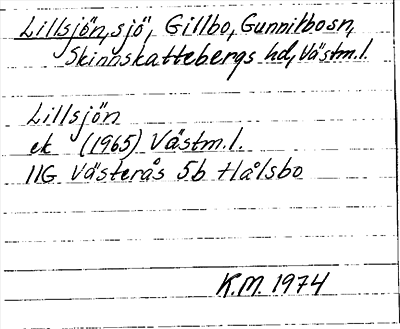 Lillsjön, sjö, Gillbo, Gunnilbosn,
Skinnskattebergs hd, Västm.l.
Lillsjön
ek (1965) Västm.l.
11G Västerås 5b Hålsbo
K.M. 1974